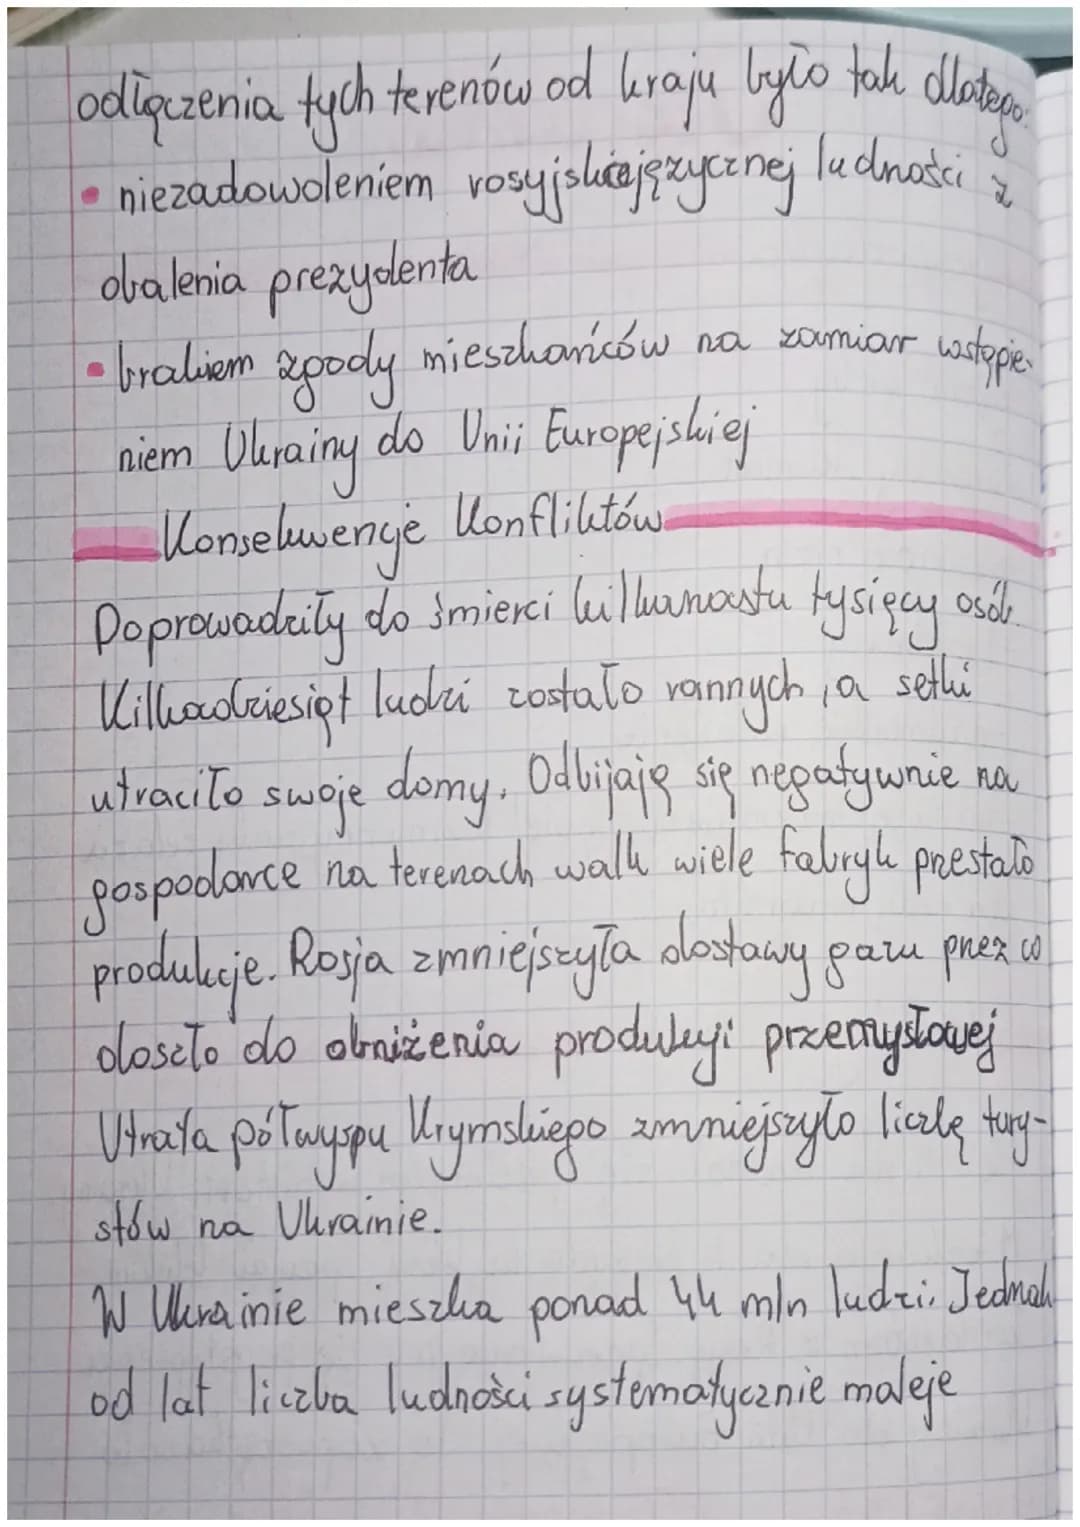 odłączenia tych terenów od kraju było tak dlatego:
• niezadowoleniem rosyjskiejęzycznej ludności z
obalenia prezydenta
• brakiem zgody mieszkańców na zamiar wstąpie-
niem Ukrainy do Unii Europejskiej
Konsekwencje Konfliktów
Doprowadziły do śmierci kilkunastu tysięcy osób.
Kilkadziesiąt ludzi zostało rannych, a setki
utraciło swoje domy. Odbijają się negatywnie na
gospodarce na terenach walk wiele fabryk przestało
produkcje. Rosja zmniejszyła dostawy gazu przez co
doszło do obniżenia produkcji przemysłowej
Utrata półwyspu Krymskiego zmniejszyło liczbę tury-
stów na Ukrainie.
W Ukrainie mieszka ponad 44 mln ludzi. Jednak
od lat liczba ludności systematycznie maleje